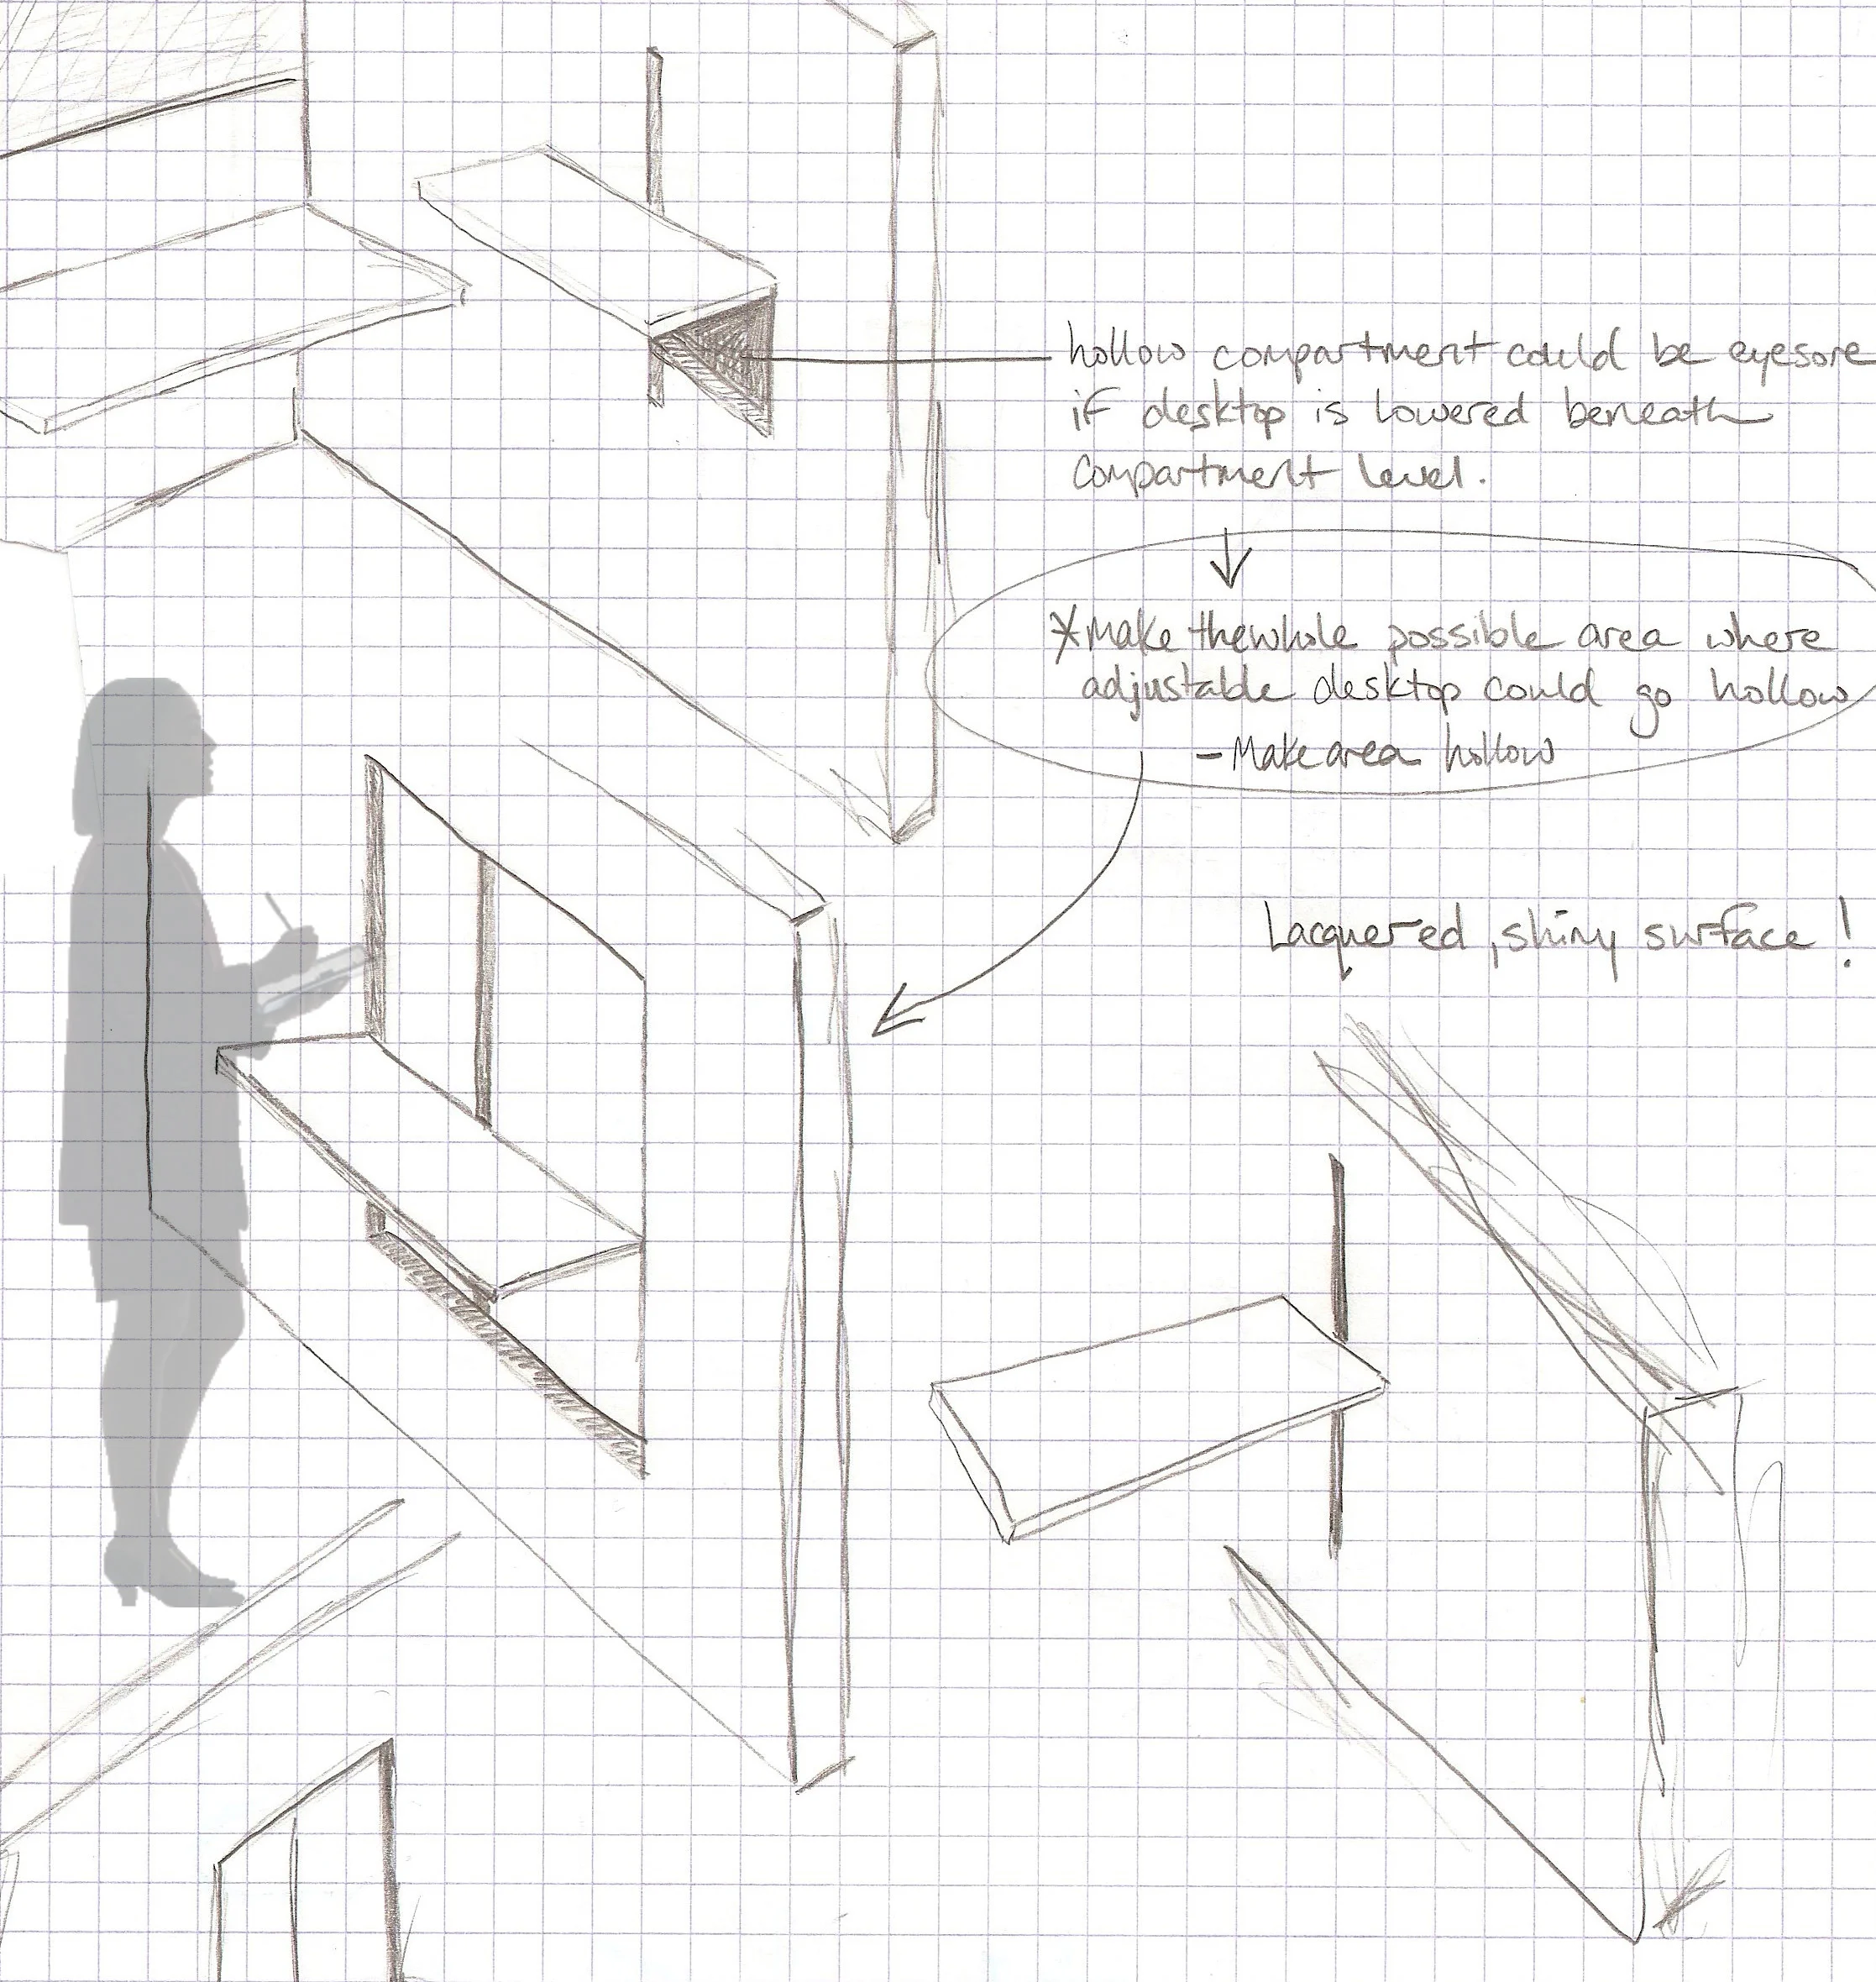 hollow compartment could be eyesore
if desktop is lowered beneath
compartment level.
*Make the whole possible area where
adjustable desktop could go hollow
- Make area hollow
Lacquered, shiny surface!